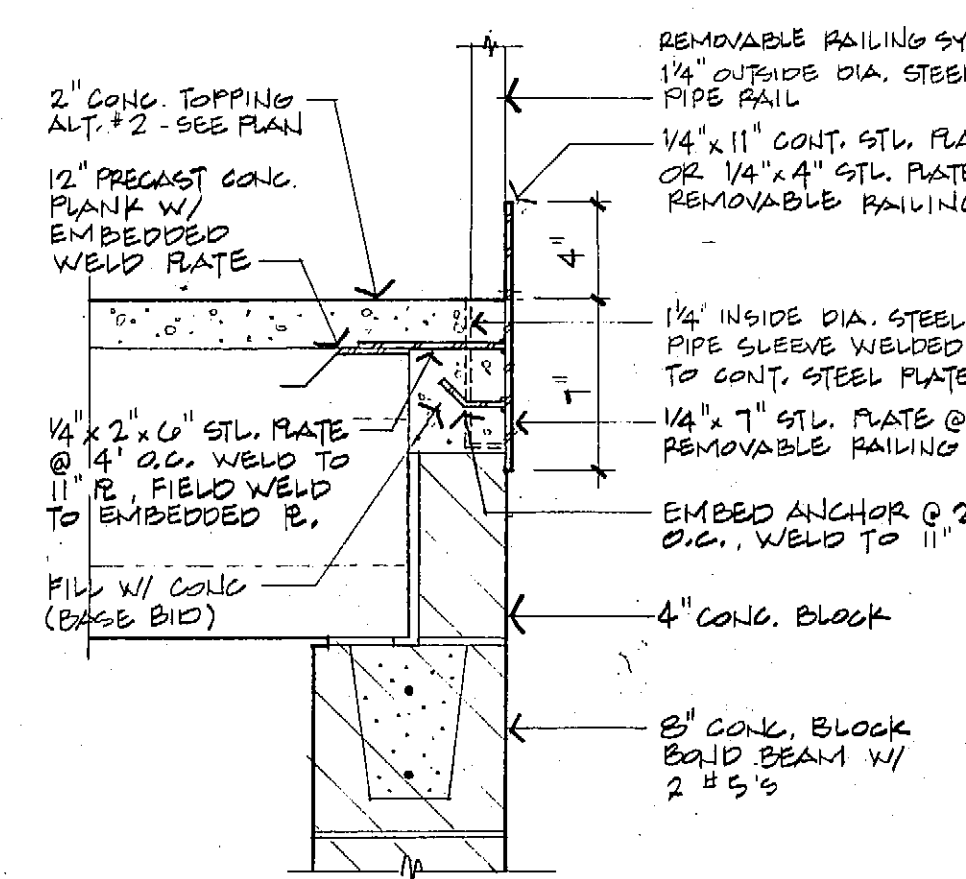 2" CONC. TOPPING
ALT. #2 - SEE PLAN
12" PRECAST CONC.
PLANK W/
EMBEDDED
WELD PLATE
1/4" x 2" x 6" STL. PLATE
@ 4' O.C. WELD TO
11" PL, FIELD WELD
TO EMBEDDED PL.
FILL W/ CONC
(BASE BID)
REMOVABLE RAILING SY
1 1/4" OUTSIDE DIA. STEEL
PIPE RAIL
1/4" x 11" CONT. STL. PLA
OR 1/4" x 4" STL. PLATE
REMOVABLE RAILING
4"
7"
1 1/4" INSIDE DIA. STEEL
PIPE SLEEVE WELDED
TO CONT. STEEL PLATE
1/4" x 7" STL. PLATE @
REMOVABLE RAILING
EMBED ANCHOR @ 2
O.C., WELD TO 11"
4" CONC. BLOCK
8" CONC. BLOCK
BOND BEAM W/
2 #5'S